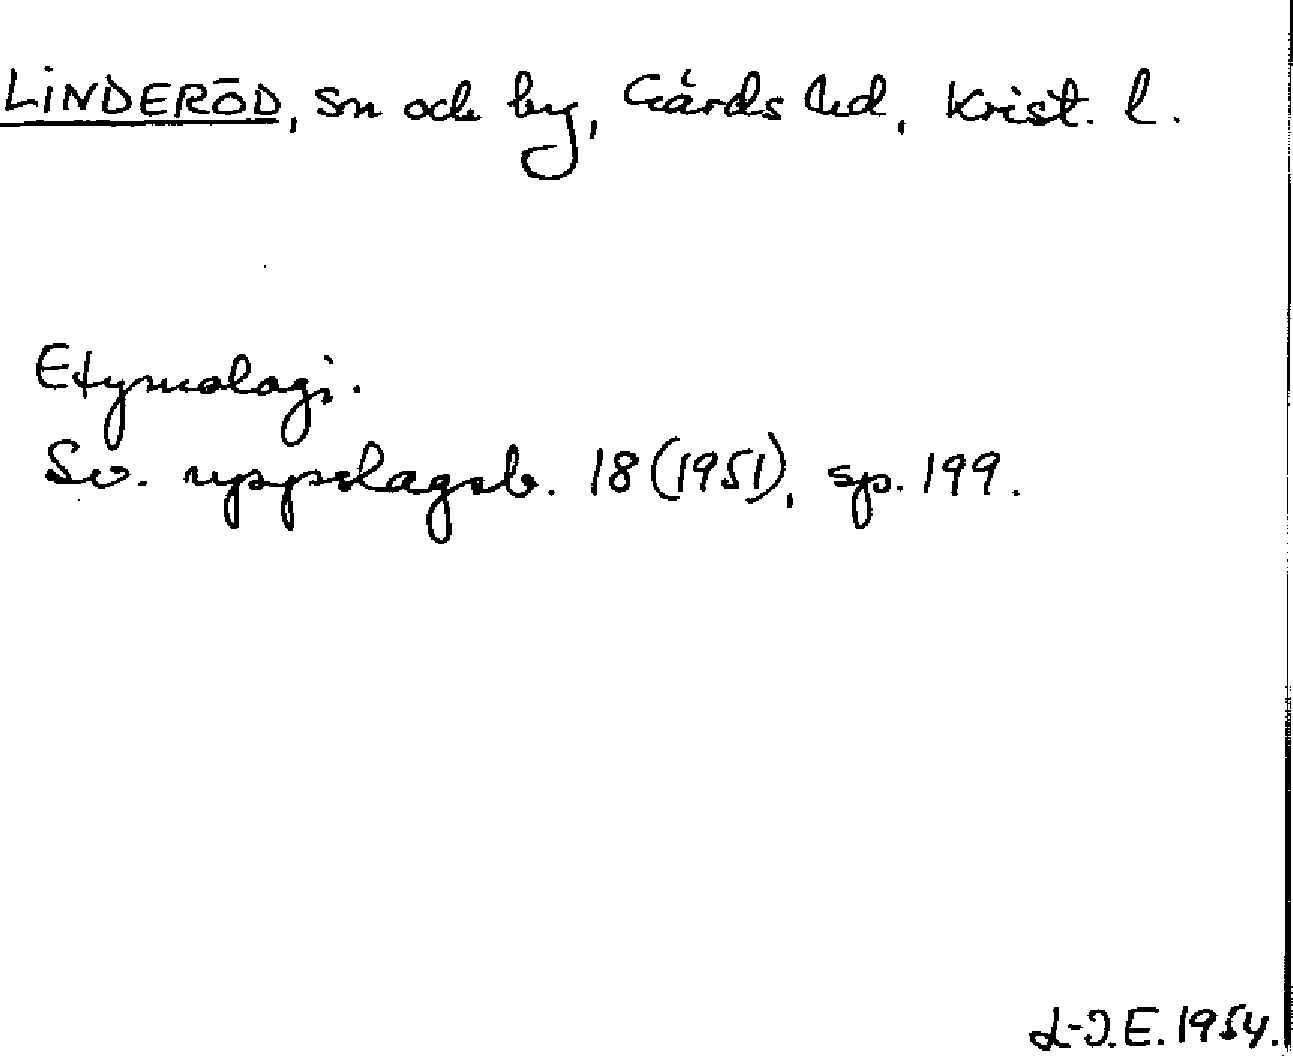 LINDERÖD, sn och by, Gärds hd, Krist. l.
Etymologi.
Sv. uppslagsb. 18 (1951), sp. 199.
L-I.E. 1954.